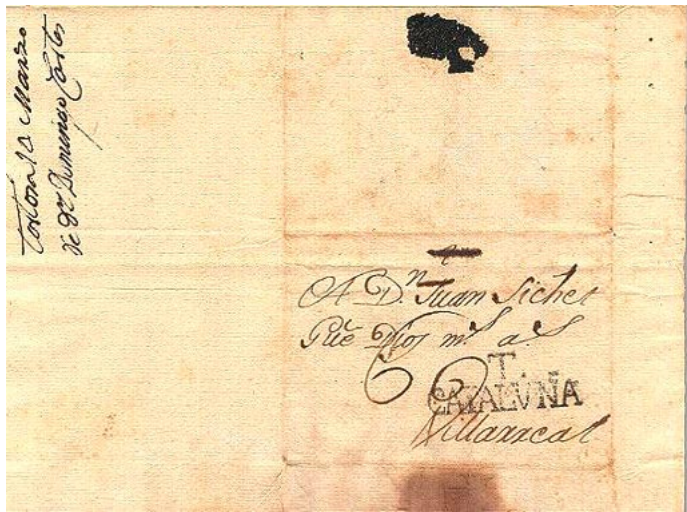 Tortosa 10 Marzo
de Dn Domingo Cortes
A Dn Juan Sichet
Gue Dios ms as
T.
CATALUÑA
Villarreal